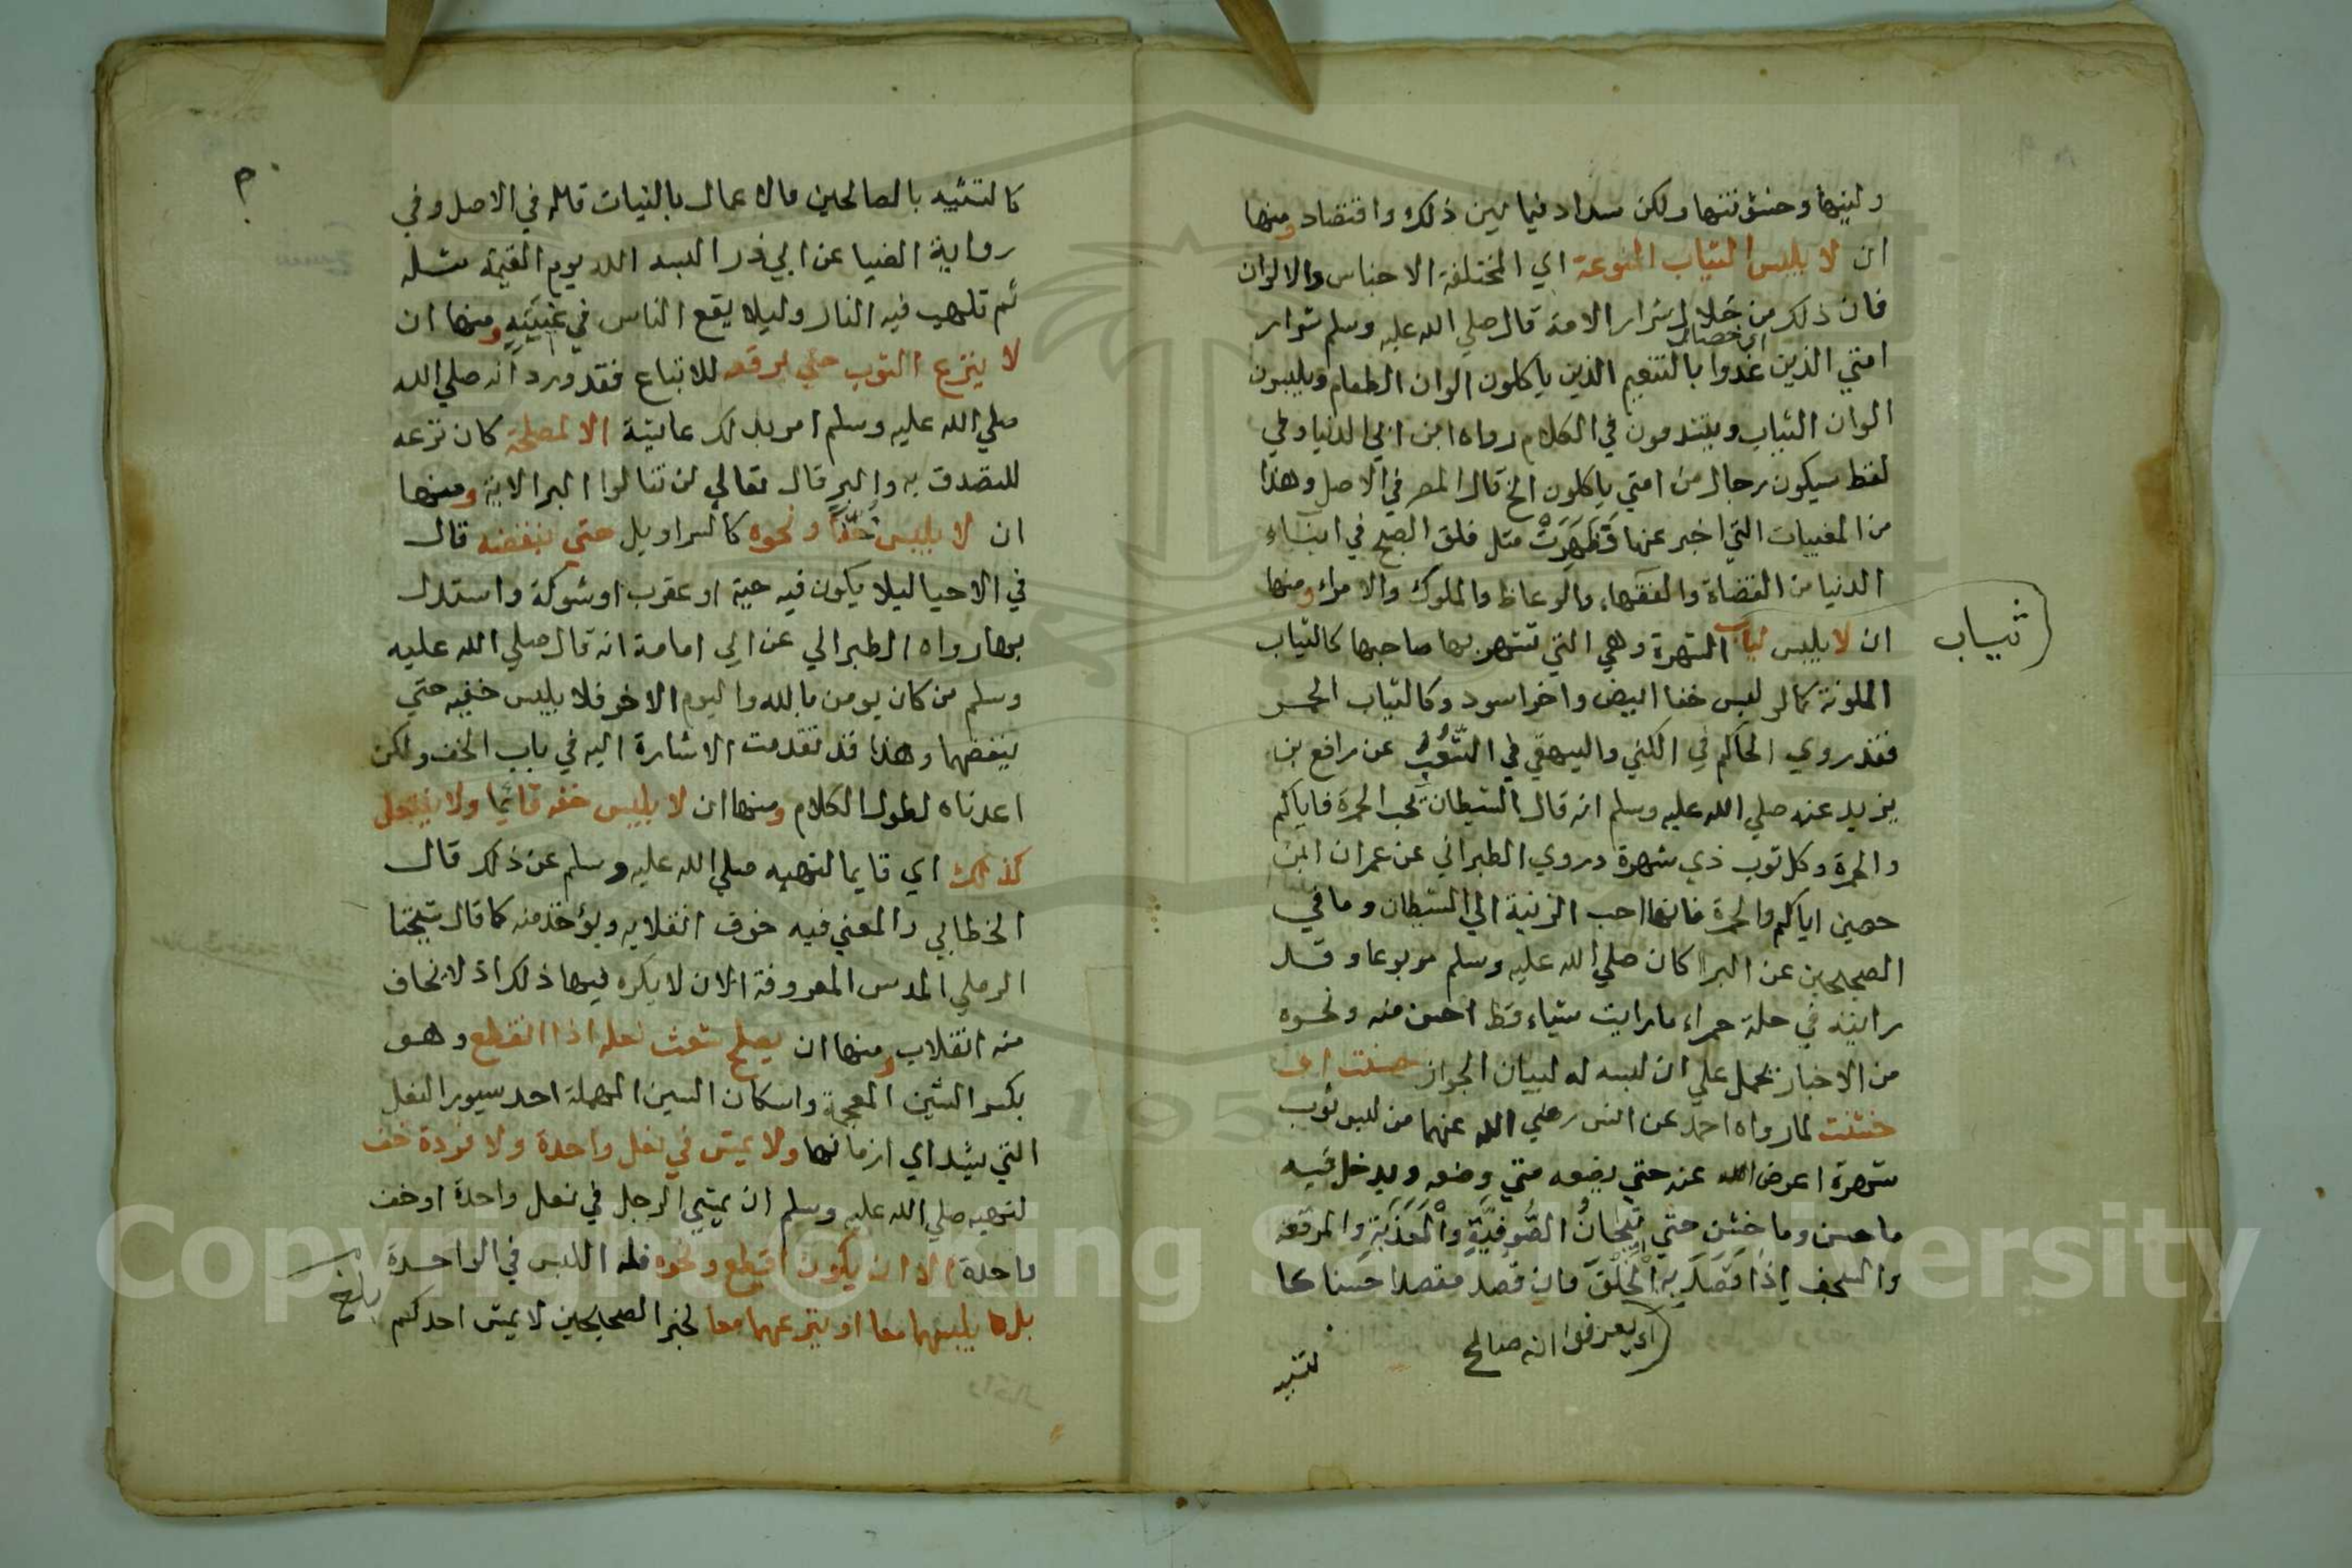 ولينها وخشونتها ولكن سداد فيما بين ذلك واقتصاد ومنها
ان لا يلبس الثياب المنوعة اي المختلفة الاجناس والالوان
فان ذلك من خلال شرار الامة قال صلي الله عليه وسلم شرار
اي خصال
امتي الذين غدوا بالنعيم الذين ياكلون الوان الطعام ويلبسون
الوان الثياب ويتشدقون في الكلام رواه ابن ابي الدنيا وفي
لفظ سيكون رجال من امتي ياكلون الخ قال المص في الاصل وهذا
من المغيبات التي اخبر عنها فَظَهَرَتْ مثل فلق الصبح في ابناء
الدنيا من القضاة والفقهاء والوعاظ والملوك والامراء ومنها
ان لا يلبس ثياب الشهرة وهي التي تشتهر بها صاحبها كالثياب
ثياب
الملونة كما لو لبس خفا ابيض واخر اسود وكالثياب الحمر
فقد روي الحاكم في الكني والبيهقي في الشعب عن رافع بن
يزيد عنه صلي الله عليه وسلم انه قال الشيطان يحب الحمرة فاياكم
والحمرة وكل ثوب ذي شهرة وروي الطبراني عن عمران ابن
حصين اياكم والحمرة فانها احب الزينة الي الشيطان وما في
الصحيحين عن البرا كان صلي الله عليه وسلم مربوعا وقد
رايته في حلة حمراء ما رايت شياء قط احسن منه ونحوه
من الاخبار يحمل علي ان لبسه له لبيان الجواز حسنت او
خشنت لما رواه احمد عن انس رضي الله عنهما من لبس ثوب
شهرة اعرض الله عنه حتي يضعه متي وضعه ويدخل فيه
ما حسن وما خشن حتي تيجانُ الصُّوفِيَّةِ وَالْعَذَبَةِ والمرقعة
والسجف اِذَا قَصَدَ بِهِ الْخَلْقَ فان قصد مقصدا حسنا كا
اي يعرفوا انه صالح
لتشبه
كالتشبه بالصالحين فالاعمال بالنيات قاله في الاصل وفي
رواية الضيا عن ابي ذر البسه الله يوم القيمة مثله
ثم تلهب فيه النار وليلا يقع الناس في غيبته ومنها ان
لا ينزع الثوب حتي يرقعه للاتباع فقد ورد انه صلي الله
صلي الله عليه وسلم امر بذلك عايشة الا لمصلحة كان نزعه
للتصدق به والبر قال تعالي لن تنالوا البر الاية ومنها
ان لا يلبس خفا ونحوه كالسراويل حتي ينفضه قال
في الاحيا ليلا يكون فيه حية او عقرب او شوكة واستدل
بما رواه الطبراني عن ابي امامة انه قال صلي الله عليه
وسلم من كان يومن بالله واليوم الاخر فلا يلبس خفيه حتي
ينفضهما وهذا قد تقدمت الاشارة اليه في باب الخف ولكن
اعدناه لطول الكلام ومنها ان لا يلبس خفه قائما ولا ينتعل
كذلك اي قايما لنهيه صلي الله عليه وسلم عن ذلك قال
الخطابي والمعني فيه خوف انقلابه ويؤخذ منه كما قال شيخنا
الرملي المدس المعروفة الان لا يكره فيها ذلك اذ لا يخاف
منه انقلاب ومنها ان يصلح شسع نعله اذا انقطع وهو
بكسر الشين المعجمة واسكان السين المهملة احد سيور النعل
التي يشد اي ازمانها ولا يمش في نعل واحدة ولا فردة خف
لنهيه صلي الله عليه وسلم ان يمشي الرجل في نعل واحدة او خف
واحدة الا ان يكون اقطع ونحوه فله اللبس في الواحدة
بلغ
بل يلبسهما معا او ينزعهما معا لخبر الصحيحين لا يمش احدكم
Copyright © King Saud University
195